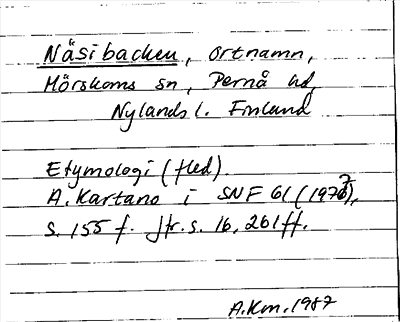 Näsibacken, ortnamn,
Mörskoms sn, Pernå hd,
Nylands l. Finland
Etymologi (fled).
A. Kartano i SNF 61 (1973),
s. 155 f. Jfr. s. 16, 261 ff.
A.Km. 1987